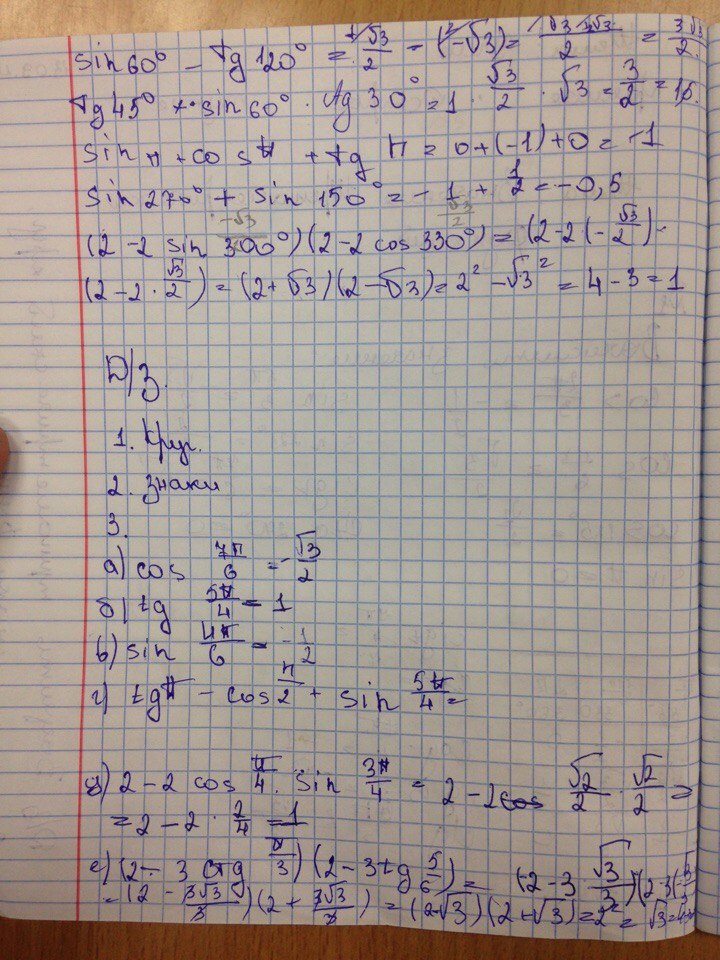 sin 60° - tg 120° = √3/2 - (-√3) = √3+2√3/2 = 3√3/2
tg 45° · sin 60° · ctg 30° = 1 · √3/2 · √3 = 3/2 = 1,5
sin π + cos π + tg π = 0 + (-1) + 0 = -1
sin 270° + sin 150° = -1 + 1/2 = -0,5
(2 - 2 sin 300°)(2 - 2 cos 330°) = (2 - 2(-√3/2) ·
(2 - 2 · √3/2) = (2 + √3)(2 - √3) = 2² - √3² = 4 - 3 = 1
Д/З.
1. Круг.
2. Знаки
3.
а) cos 7π/6 = -√3/2
б) tg 5π/4 = 1
в) sin 4π/6 = -1/2
г) tg π - cos π/2 + sin 5π/4 =
д) 2 - 2 cos π/4 · sin 3π/4 = 2 - 2 √2/2 · √2/2 =
= 2 - 2 · 2/4 = 1
е) (2 - 3 ctg π/3)(2 - 3 tg 5/6) = (2 - 3 √3/3)(2 - 3(
= (2 - 3√3/3)(2 + 3√3/3) = (2 - √3)(2 + √3) = 2² =